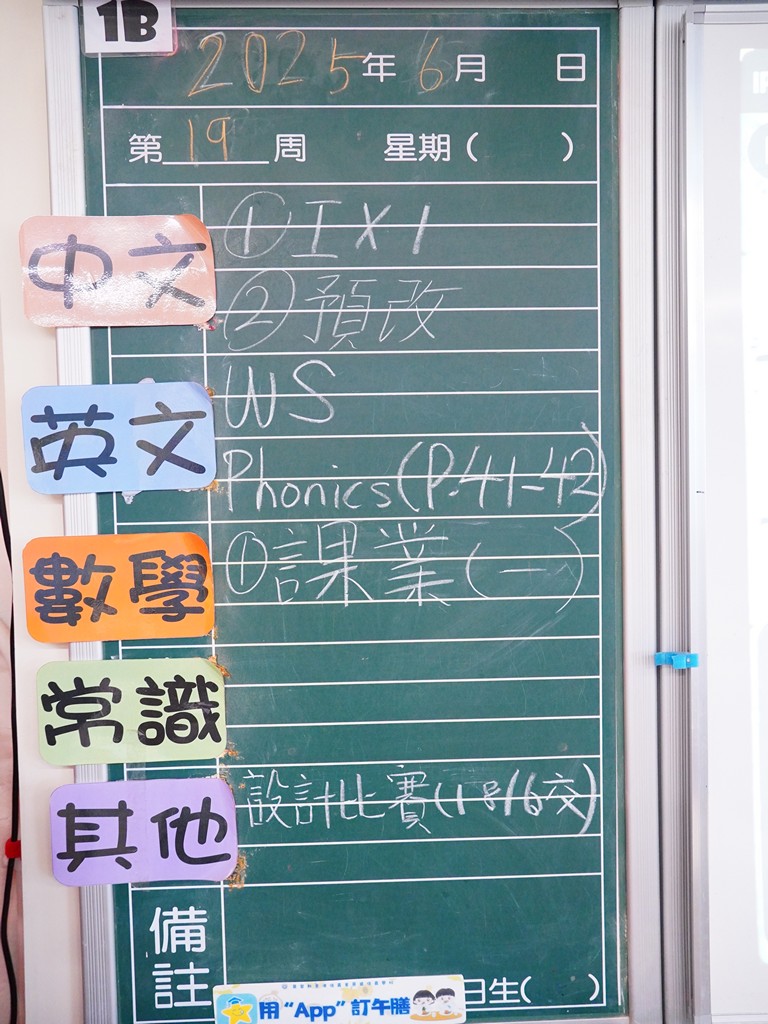 1B
2025年6月 日
第19周 星期( )
中文
①工X1
②預改
英文
WS
Phonics(P.41-42)
數學
①課業(一)
常識
其他
設計比賽(18/6交)
備註
日生( )
用“App”訂午膳